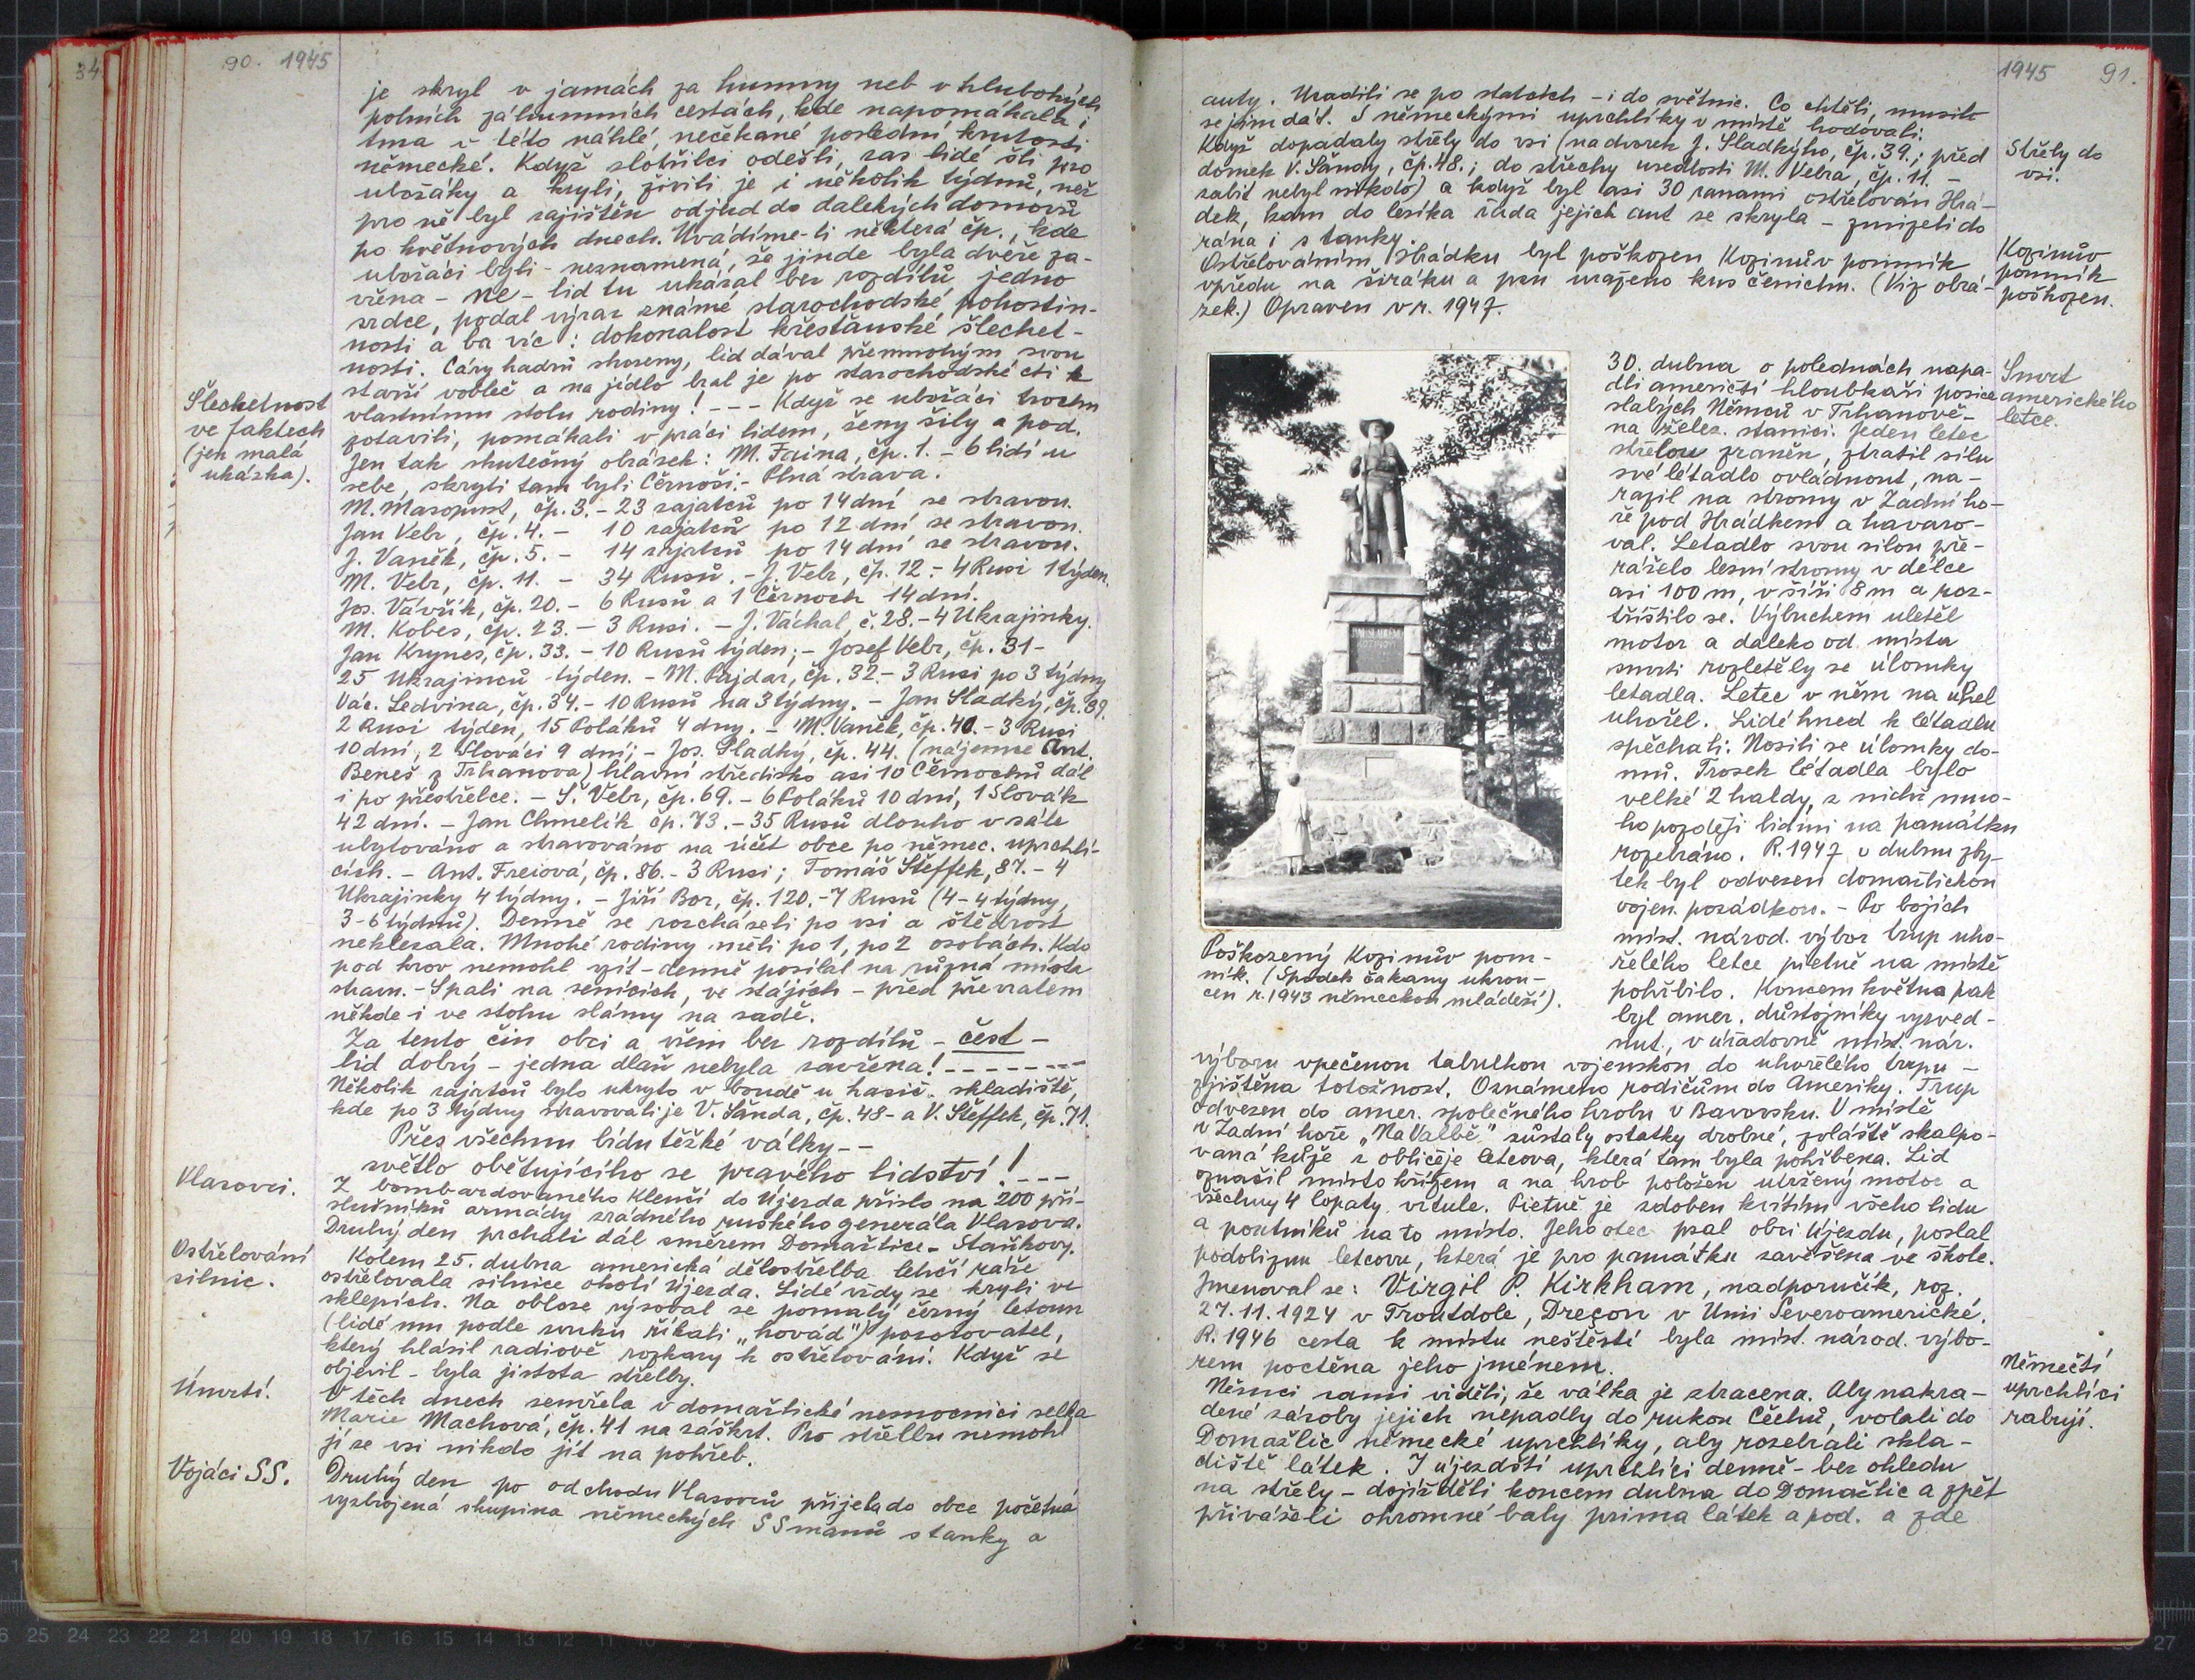 90. 1945
je skryl v jamách za humny neb v hlubokých
polních záhumních cestách, kde napomáhala i
tma v této náhlé, nečekané poslední krutosti
německé. Když slotřilci odešli, zas lidé šli pro
ubožáky a kryli, živili je i několik týdnů, než
pro ně byl zajištěn odjezd do dalekých domovů
po květnových dnech. Uvádíme-li některá čp., kde
ubožáci byli - neznamená, že jinde byla dvéře za-
vřena - ne - lid tu ukázal bez rozdílů jedno
srdce, podal výraz známé starochodské pohostin-
nosti a ba víc: dokonalost křesťanské šlechet-
nosti. Cáry hadrů shozeny, lid dával přemnohým svou
starší vobleč a na jídlo bral je po starochodské cti k
vlastnímu stolu rodiny! --- Když se ubožáci trochu
zotavili, pomáhali v práci lidem, ženy šily a pod.
Jen tak skutečný obrázek: M. Faina, čp. 1. - 6 lidí u
sebe, skryti tam byli Černoši. - Plná strava.
M. Masopust, čp. 3. - 23 zajatců po 14 dní se stravou.
Jan Vebr, čp. 4. - 10 zajatců po 12 dní se stravou.
J. Vaněk, čp. 5. - 14 zajatců po 14 dní se stravou.
M. Vebr, čp. 11. - 34 Rusů. - J. Vebr, čp. 12. - 4 Rusi 1 týden.
Jos. Vávřík, čp. 20. - 6 Rusů a 1 Černoch 14 dní.
M. Kobes, čp. 23. - 3 Rusi. - J. Váchal, č. 28. - 4 Ukrajinky.
Jan Krynes, čp. 33. - 10 Rusů týden; - Josef Vebr, čp. 31 -
25 Ukrajinců týden. - M. Pajdar, čp. 32. - 3 Rusi po 3 týdny
Vác. Ledvina, čp. 34. - 10 Rusů na 3 týdny. - Jan Sladký, čp. 39.
2 Rusi týden, 15 Poláků 4 dny. - M. Vaněk, čp. 40. - 3 Rusi
10 dní, 2 Slováci 9 dní; - Jos. Sladký, čp. 44. (nájemce Ant.
Beneš z Trhanova) hlavní středisko asi 10 Černochů dál
i po přestřelce. - Š. Vebr, čp. 69. - 6 Poláků 10 dní, 1 Slovák
42 dní. - Jan Chmelík čp. 73. - 35 Rusů dlouho v sále
ubytováno a stravováno na účet obce po němec. uprchlí-
cích. - Ant. Freiová, čp. 86. - 3 Rusi; Tomáš Šteffek, 87. - 4
Ukrajinky 4 týdny. - Jiří Bor, čp. 120. - 7 Rusů (4 - 4 týdny,
3 - 6 týdnů). Denně se rozcházeli po vsi a štědrost
neklesala. Mnohé rodiny měli po 1, po 2 osobách. Kdo
pod krov nemohl vzít - denně posílal na různá místa
stravu. - Spali na senících, ve stájích - před převratem
někde i ve stohu slámy na sadě.
Za tento čin obci a všem bez rozdílů - čest -
lid dobrý - jedna dlaň nebyla zavřena! -------
Několik zajatců bylo ukryto v boudě u hasič. skladiště,
kde po 3 týdny stravovali je V. Šánda, čp. 48 - a V. Šteffek, čp. 71.
Přes všechnu bídu těžké války --
světlo obětujícího se pravého lidství! ---
Z bombardovaného Klenčí do Újezda přišlo na 200 pří-
slušníků armády zrádného ruského generála Vlasova.
Druhý den prchali dál směrem Domažlice - Staňkovy.
Kolem 25. dubna americká dělostřelba lehčí ráže
ostřelovala silnice okolí Újezda. Lidé vždy se kryli ve
sklepích. Na obloze rýsoval se pomalý černý letoun
(lidé mu podle zvuku říkali „hovád") pozorovatel,
který hlásil radiově rozkazy k ostřelování. Když se
objevil - byla jistota střelby.
V těch dnech zemřela v domažlické nemocnici selka
Marie Machová, čp. 41 na záškrt. Pro střelbu nemohl
jí ze vsi nikdo jít na pohřeb.
Druhý den po odchodu Vlasovců přijela do obce početná
vyzbrojená skupina německých SSmanů s tanky a
Šlechetnost
ve faktech
(jen malá
ukázka).
Vlasovci.
Ostřelování
silnic.
Úmrtí.
Vojáci SS.
34
1945 91.
auty. Usadili se po statcích - i do světnic. Co chtěli, musilo
se jim dát. S německými uprchlíky v místě hodovali.
Když dopadaly střely do vsi (na dvorek J. Sladkýho, čp. 39.; před
domek V. Šándy, čp. 48.; do střechy usedlosti M. Vebra, čp. 11. -
zabit nebyl nikdo) a když byl asi 30 ranami ostřelován Hrá-
dek, kam do lesíka řada jejich aut se skryla - zmizeli do
rána i s tanky.
Ostřelováním Hrádku byl poškozen Kozinův pomník
vpředu na širáku a psu uraženo kus čenichu. (Viz obrá-
zek.) Opraven v r. 1947.
30. dubna o polednách napa-
dli američtí hloubkaři posice
slabých Němců v Trhanově -
na želez. stanici. Jeden letec
střelou zraněn, ztratil sílu
své létadlo ovládnout, na-
razil na stromy v Zadní ho-
ře pod Hrádkem a havaro-
val. Letadlo svou silou pře-
ráželo lesní stromy v délce
asi 100 m, v šíři 8 m a roz-
tříštilo se. Výbuchem uletěl
motor a daleko od místa
smrti rozletěly se úlomky
letadla. Letec v něm na uhel
uhořel. Lidé hned k létadlu
spěchali. Nosili se úlomky do-
mů. Trosek létadla bylo
velké 2 haldy, z nichž mno-
ho později lidmi na památku
rozebráno. R. 1947 v dubnu zby-
tek byl odvezen domažlickou
vojen. posádkou. - Po bojích
míst. národ. výbor trup uho-
řelého letce pietně na místě
pohřbilo. Koncem května pak
byl amer. důstojníky vyzved-
nut, v úřadovně míst. nár.
výboru vpečenou tabulkou vojenskou do uhořelého trupu -
zjištěna totožnost. Oznámeno rodičům do Ameriky. Trup
odvezen do amer. společného hrobu v Bavorsku. V místě
v Zadní hoře „Na Valbě" zůstaly ostatky drobné, zvláště skalpo-
vaná kůže z obličeje letcova, která tam byla pohřbena. Lid
označil místo křížem a na hrob položen utržený motor a
všechny 4 lopaty vrtule. Pietně je zdoben kvítím všeho lidu
a poutníků na to místo. Jeho otec psal obci Újezdu, poslal
podobiznu letcovu, která je pro památku zavěšena ve škole.
Jmenoval se: Virgil P. Kirkham, nadporučík, roz.
27.11.1924 v Troutdole, Dregon v Unii Severoamerické.
R. 1946 cesta k místu neštěstí byla míst. národ. výbo-
rem poctěna jeho jménem.
Němci sami viděli, že válka je ztracena. Aby nakra-
dené zásoby jejich nepadly do rukou Čechů, volali do
Domažlic německé uprchlíky, aby rozebrali skla-
diště látek. I újezdští uprchlíci denně - bez ohledu
na střely - dojížděli koncem dubna do Domažlic a zpět
přiváželi ohromné baly prima látek a pod. a zde
Poškozený Kozinův pom-
ník. (Spodek čakany ukrou-
cen r. 1943 německou mládeží).
Střely do
vsi.
Kozinův
pomník
poškozen.
Smrt
amerického
letce.
Němečtí
uprchlíci
rabují.